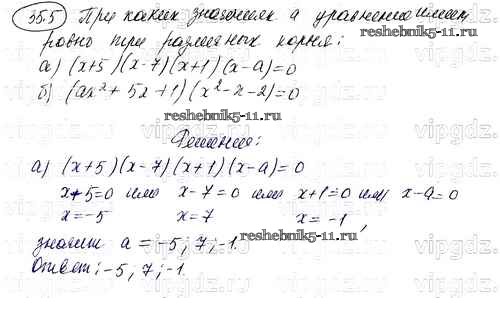 355 При каких значениях a уравнение имеет
ровно три различных корня:
reshebnik5-11.ru
а) (x+5)(x-7)(x+1)(x-a)=0
б) (ax²+5x+1)(x²-x-2)=0
reshebnik5-11.ru
Решение:
а) (x+5)(x-7)(x+1)(x-a)=0
x+5=0 или x-7=0 или x+1=0 или x-a=0
x=-5 x=7 x=-1,
reshebnik5-11.ru
значит a=-5; 7; -1.
Ответ: -5; 7; -1.